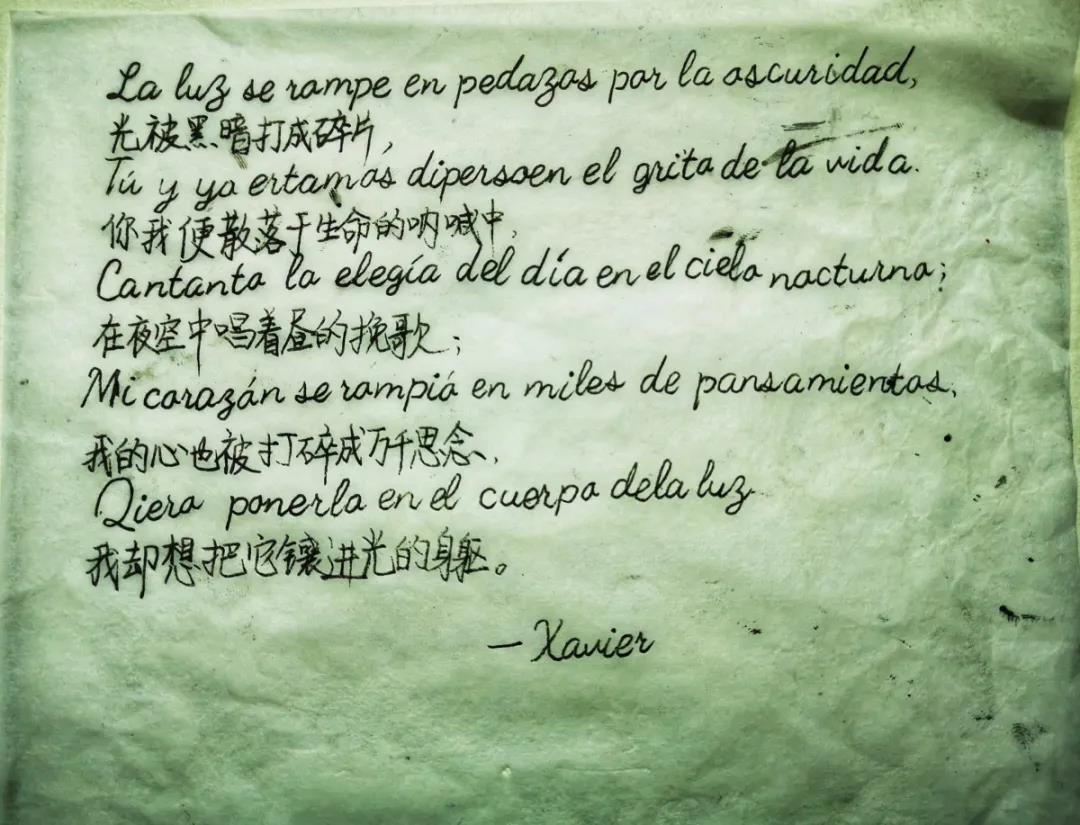 La luz se rompe en pedazos por la oscuridad,
光被黑暗打成碎片,
Tú y yo ertamos dipersoen el grito de la vida.
你我便散落于生命的呐喊中,
Cantanto la elegía del día en el cielo nocturno;
在夜空中唱着昼的挽歌;
Mi corazón se rompió en miles de pansamientos,
我的心也被打碎成万千思念、
Qiero ponerlo en el cuerpo dela luz
我却想把它镶进光的身躯。
— Xavier